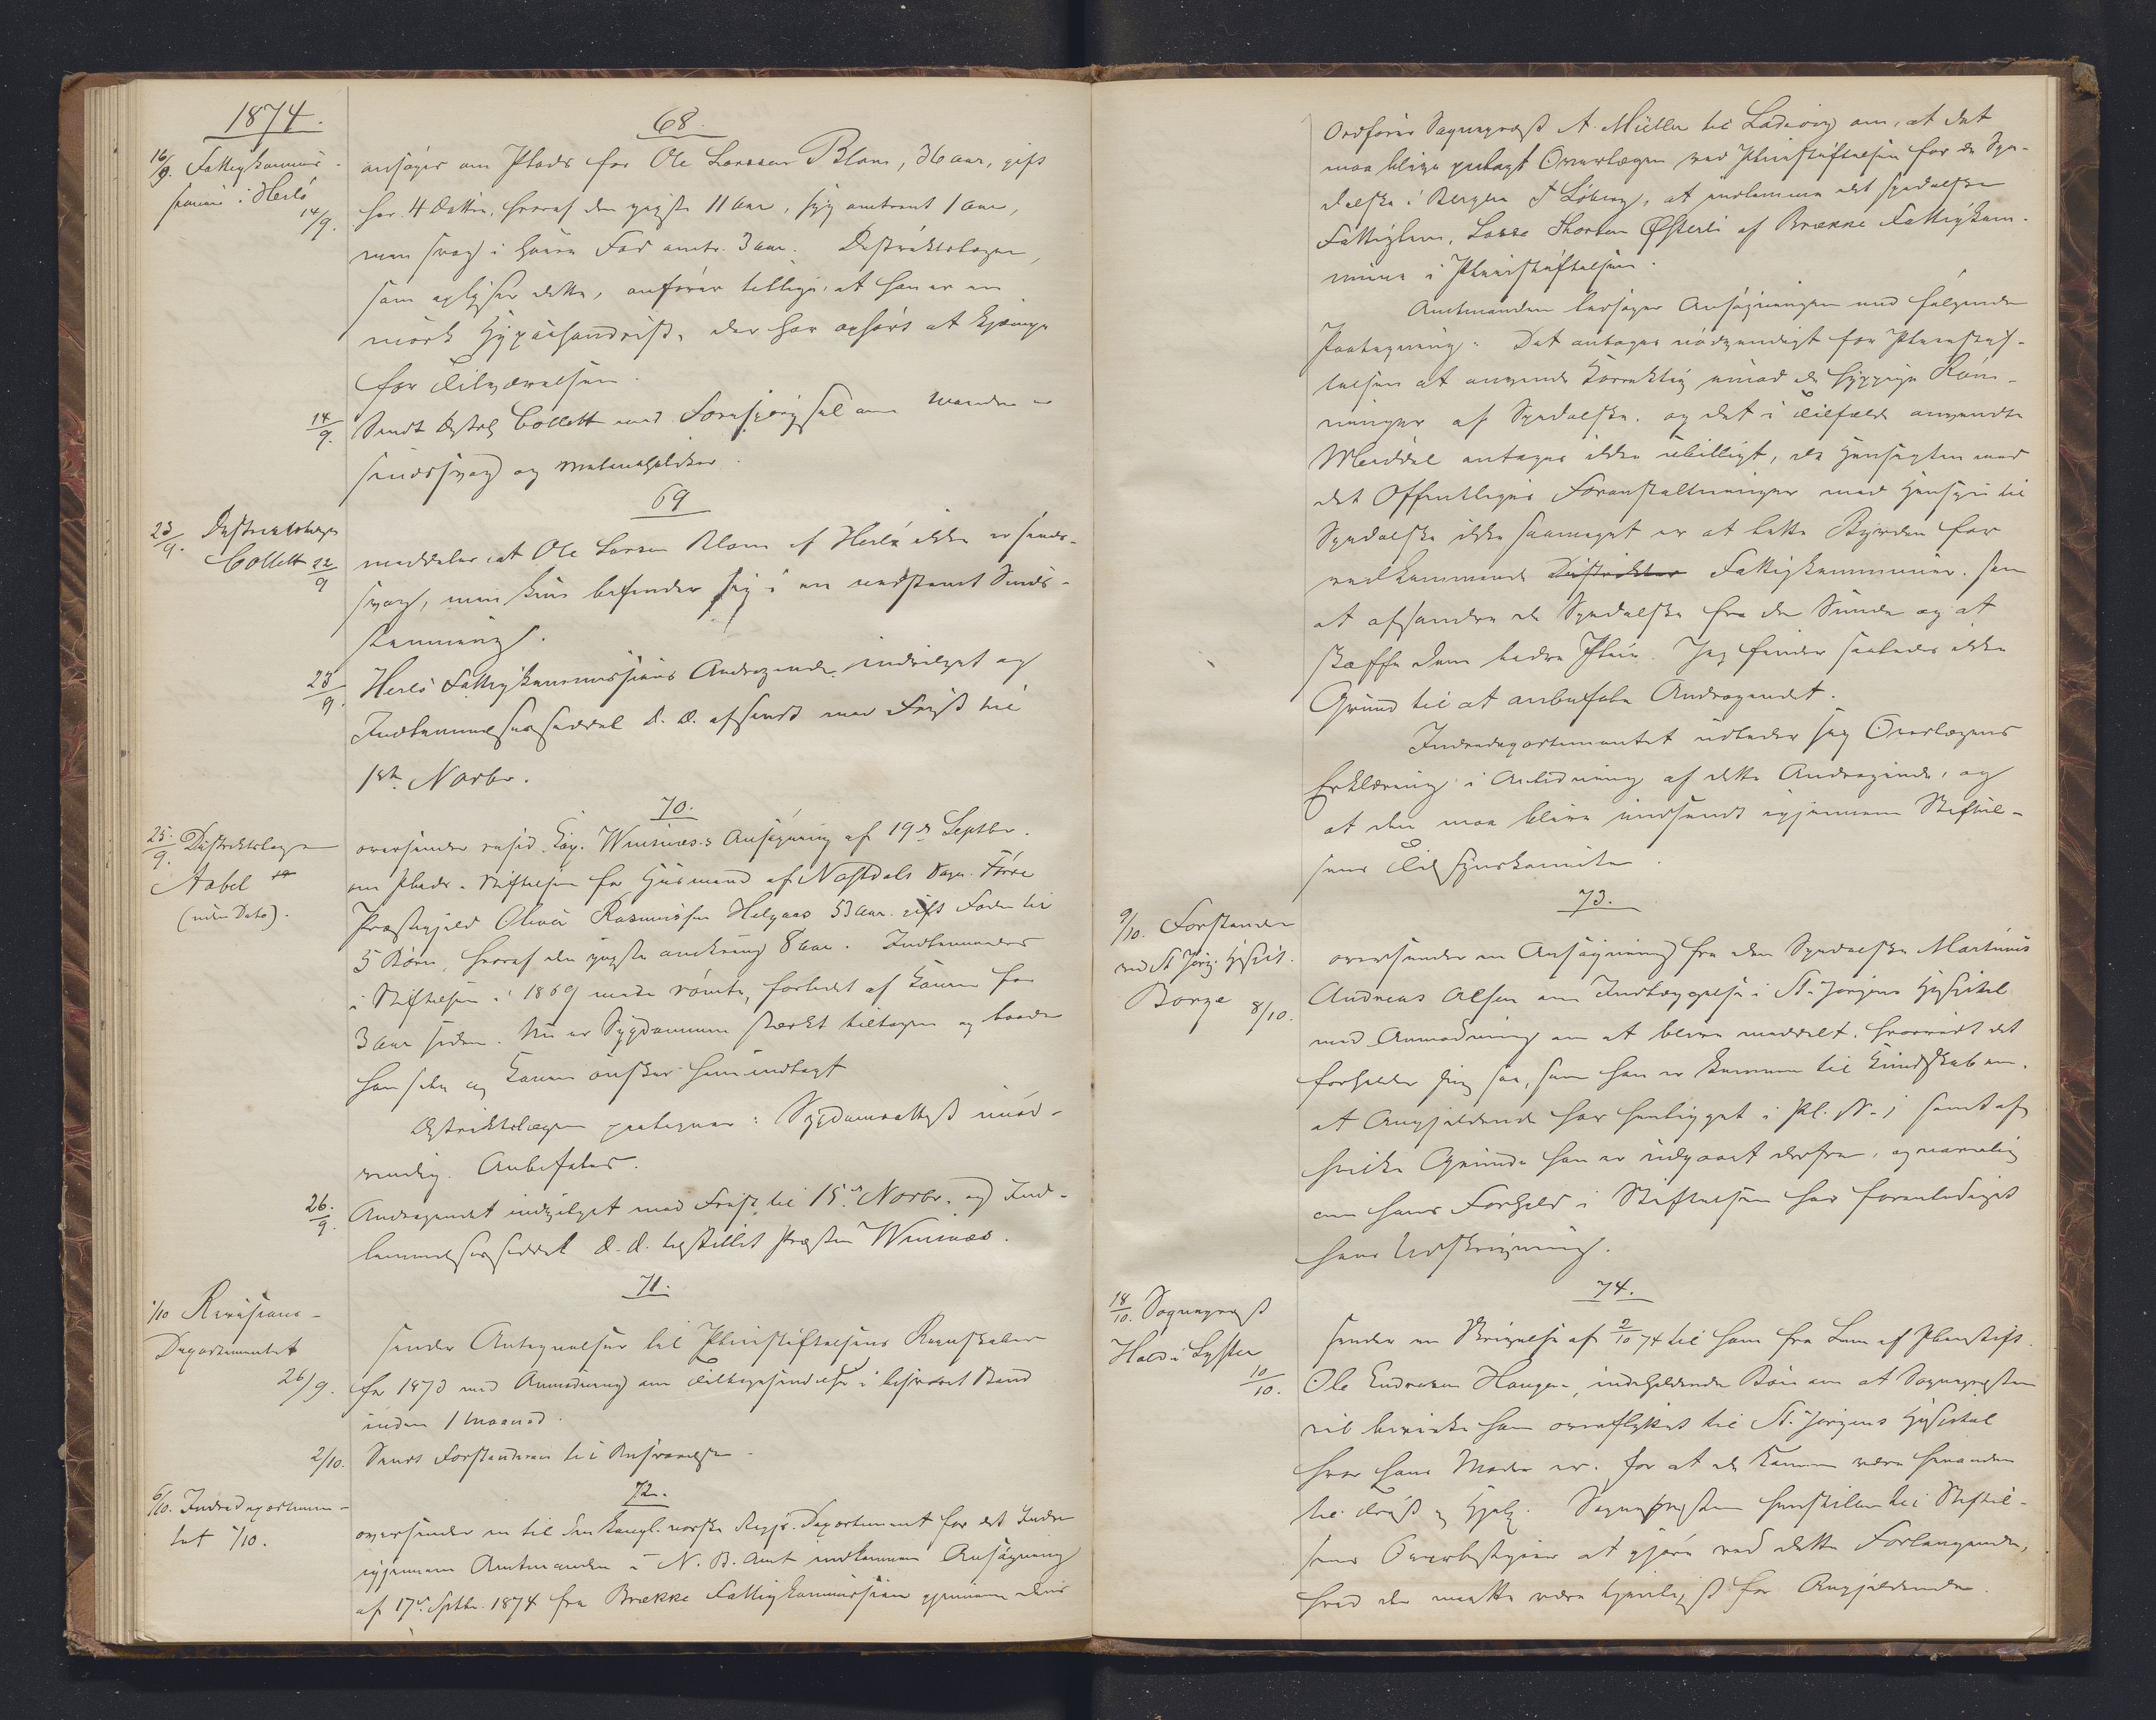 1874.
68.
16/9. Fattigkommis-
sionen i Herlö
14/9.
ansøger om Plads for Ole Larssen Blom, 36 aar, gift
har 4 Døttre, hvoraf den yngste 11 Aar, syg omtrent 1 Aar,
men svag i Fod omtr. 3 aar. Distriktslægen,
som oplyser dette, anfører tillige, at han er en
mörk Hypochondrist, der har ophørt at kjæmpe
for Tilværelsen.
14/9. Sendt Dstrl. Collett med Forespörgsel om Manden er
sindssvag og melancholsker.
69
23/9. Distriktslæge
Collett 22/9
meddeler, at Ole Larsen Blom af Herlö ikke er sinds-
svag, men kun befinder sig i en nedstemt Sinds-
stemning.
23/9. Herlö Fattigkommissions Andragende indvilget og
Indlemmelsesseddel d. d. afsendt med Frist til
1ste Novbr.
70.
25/9. Distriktslæge
Aabel
(uden Dato).
oversender resid. Kap. Wiesenes's Ansøgning af 19de Septbr.
om Plads i Stiftelsen for Husmand af Nafstdals Sogn Førde
Præstegjeld Oliver Rasmussen Helgaas 53 Aar. gift Fader til
5 Børn, hvoraf den yngste omkring 8 Aar. Indlemmedes
i Stiftelsen i 1869 men römte, forledet af Konen for
3 Aar siden. Nu er Sygdommen stærkt tiltagen og baade
han selv og Konen önsker ham indtagt
Dstriktslægen paategner: Sygdomsattest unöd-
vendig. Anbefales.
26/9. Andragendet indvilget med Frist til 15de Novbr. og Ind-
lemmelsesseddel d. d. tilstillet Præsten
71.
1/10 Revisions-
Departementet
26/9.
sender Antegnelser til Pleiestiftelsens Regnskaber
for 1873 med Anmodning om Tilbagesendelse i besvaret Stand
inden 1 Maaned.
2/10. Sendt Forstanderen til Besvarelse.
72.
6/10. Indredepartemen-
tet 1/10.
oversender en til den Kongl. norske Regjr. Departement for det Indre
igjennem Amtmanden i N. B. Amt indkommen Ansøgning
af 17de Septbr. 1874 fra Brække Fattigkommission gjennem dens
Ordförer Sognepræst A. Müller til Ladvig om, at det
maa blive paalagt Overlægen ved Pleiestiftelsen for de Spe-
dalske i Bergen T Løberg, at indlemme det spedalske
Fattiglem, Lasse Thorsen Østerli af Brække Fattigkom-
mune i Pleiestiftelsen.
Amtmanden ledsager Ansøgningen med følgende
Paategning: Det antages nödvendigt for Pleiestif-
telsen at anvende Korrektiv imod de hyppige Röm-
ninger af Spedalske, og det i Tilfælde anvendte
Middel antages ikke ubilligt, da Hensigten med
det Offentliges Foranstaltninger med Hensyn til
Spedalske ikke saameget er at lette Byrden for
vedkommende Distrikter Fattigkommuner, som
at afsondre de Spedalske fra de Sunde og at
skaffe dem bedre Pleie. Jeg finder saaledes ikke
Grund til at anbefale Andragendet.
Indredepartementet udbeder sig Overlægens
Erklæring i Anledning af dette Andragende, og
at den maa blive indsendt igjennem Stiftel-
sens Tilsynskomite.
73.
9/10. Forstander
ved St Jørg. Hspit.
Borge 8/10.
oversender en Ansøgning fra den Spedalske Martinus
Andreas Olsen om Indlæggelse i St. Jørgens Hospital
med Anmodning om at blive meddelt, hvorvidt det
forholder sig saa, som han er kommen til Kundskab om,
at Angjeldende har henligget i Pl. St. i samt af
hvilke Grunde han er udgaaet derfra, og navnlig
om hans Forhold i Stiftelsen har foranlediget
hans Udskrivning.
74.
14/10. Sognepræst
Hald i Lyster
10/10.
sender en Skrivelse af 2/10 74 til ham fra Lem af Pleiestift.
Ole Endresen Haugen, indeholdende Bön om at Sognepræsten
vil bevirke ham overflyttet til St. Jørgens Hospital
hvor hans Moder er, for at de kunne være hinanden
til Tröst og Hjælp. Sognepræsten henstiller til Stiftel-
sens Overbestyrer at gjöre ved dette Forlangende,
hvad der maatte være tjenligst for Angjeldende.